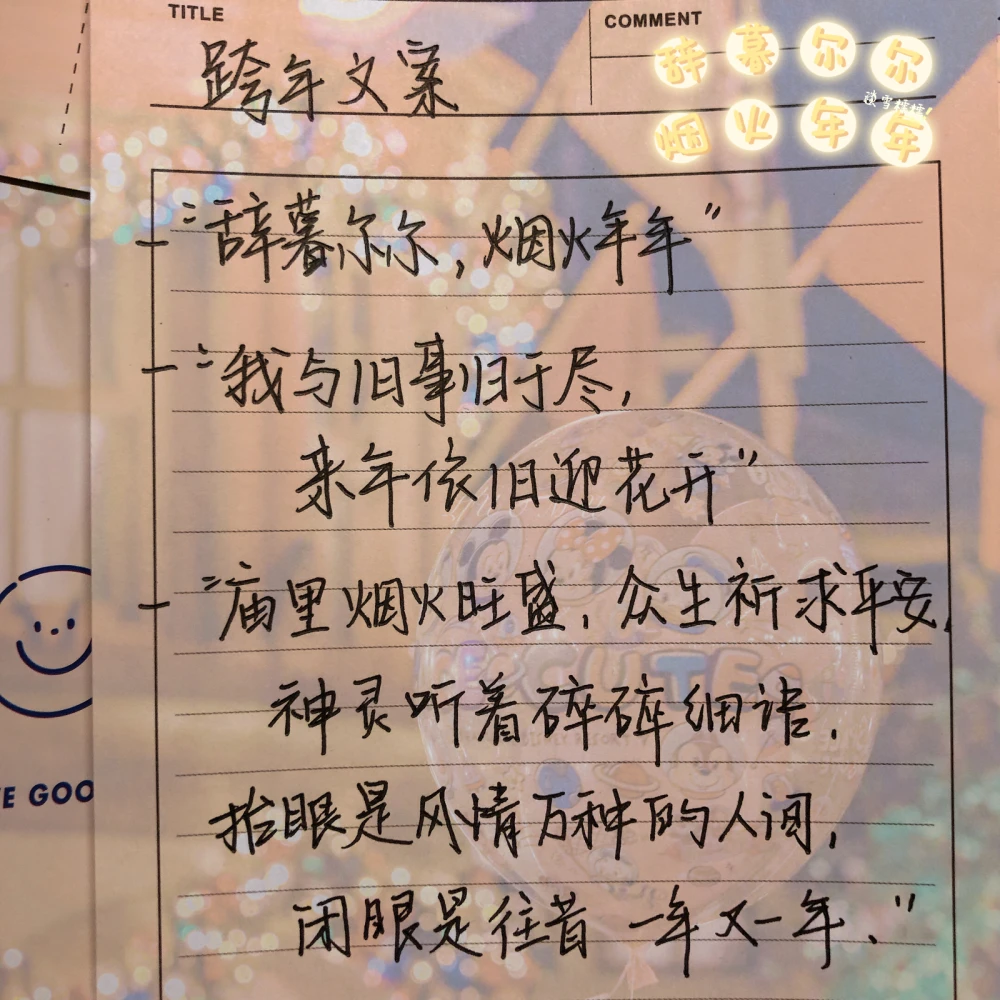 TITLE
COMMENT
跨年文案
辞暮尔尔
烟火年年
- “辞暮尔尔，烟火年年”
- “我与旧事归于尽，
来年依旧迎花开”
- “庙里烟火旺盛，众生祈求平安，
神灵听着碎碎细语，
抬眼是风情万种的人间，
闭眼是往昔 一年又一年。”
CUTE
E GOO